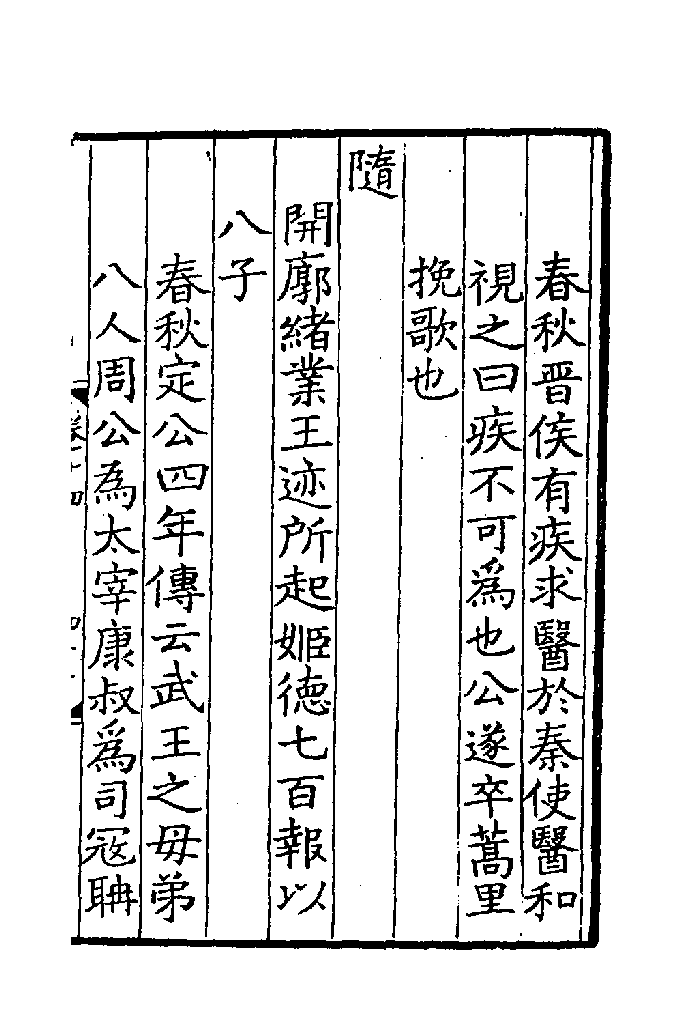 春秋晋侯有疾求醫於秦使醫和
視之曰疾不可為也公遂卒蒿里
挽歌也
隨
開廓緒業王迹所起姬德七百報以
八子
春秋定公四年傳云武王之母弟
八人周公為太宰康叔為司冦聃